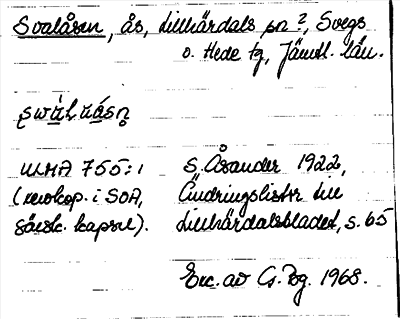 Svalåsen, ås, Lillhärdals sn ?, Svegs
o. Hede tg, Jämtl. län.
ULMA 755:1
(xerokop. i SOA,
särsk. kapsel).
S. Åsander 1922,
Ändringslistor till
Lillhärdalsbladet, s. 65
Exc. av G. Bg. 1968.